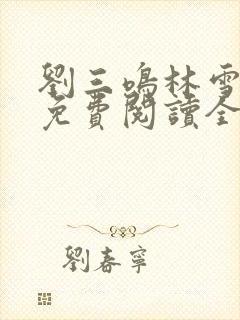 劉三鳴林雪
免費閱讀全
劉春寧